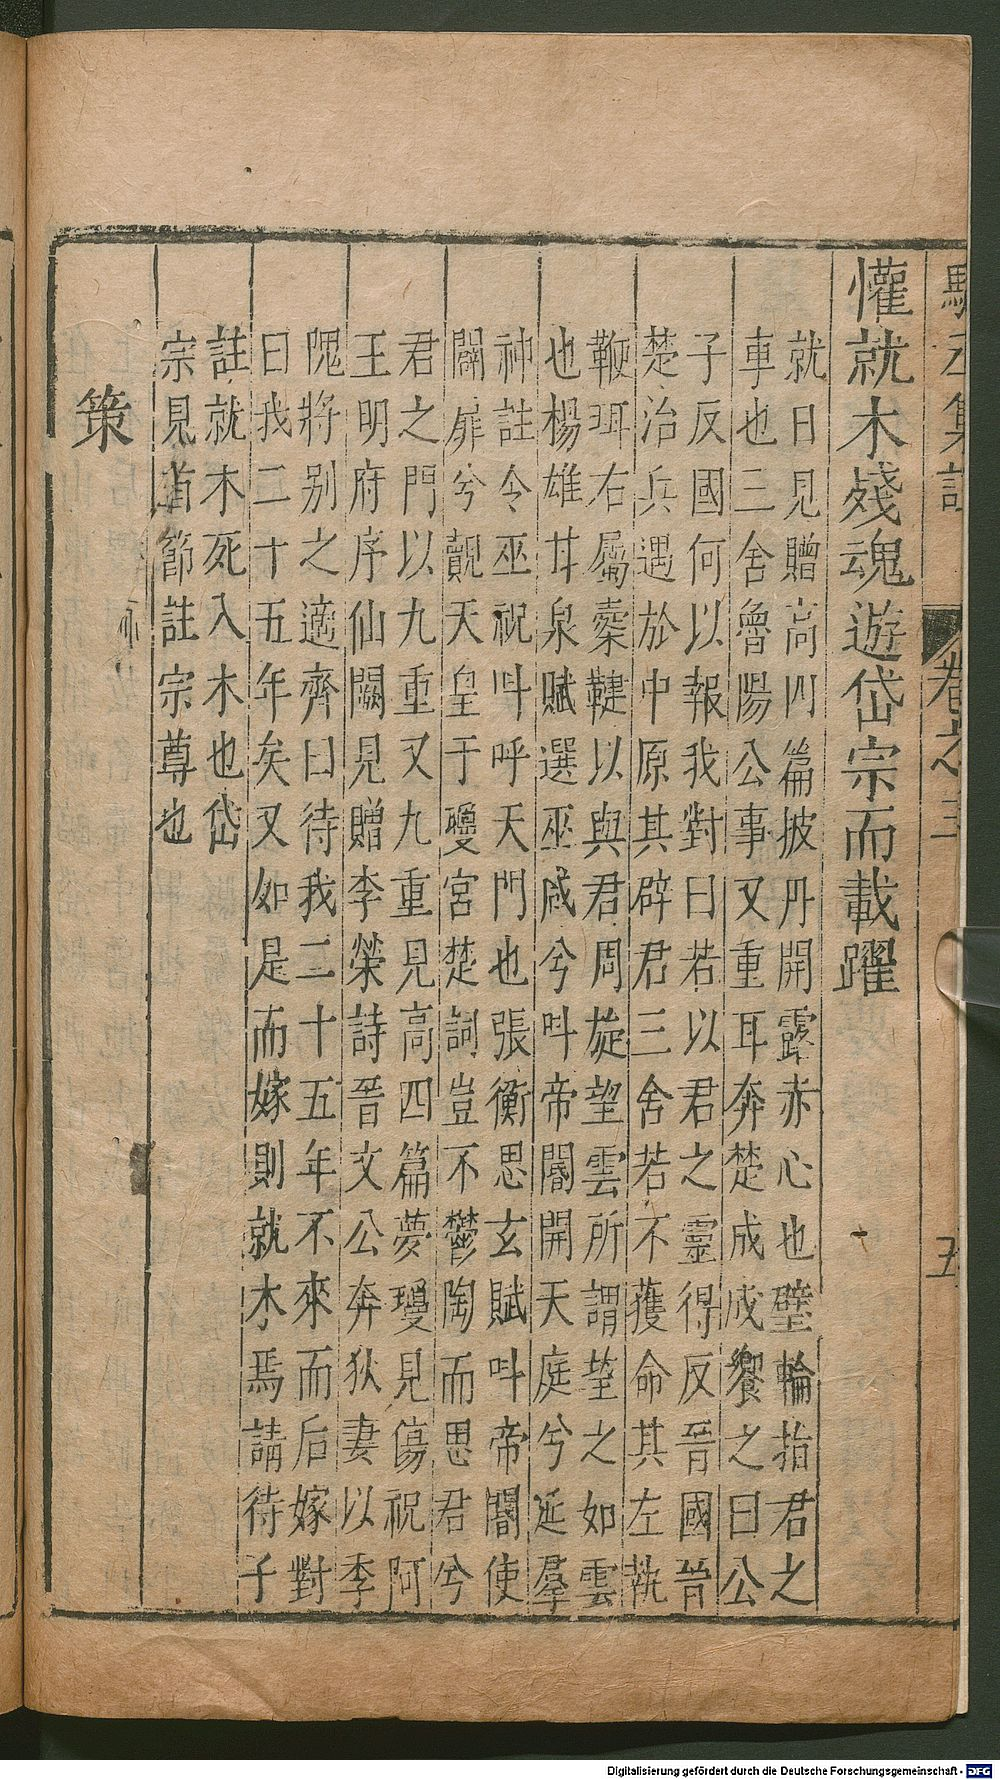 駱丞集註 卷之三 五
懽就木殘魂遊岱宗而載躍
就日見贈高四篇披丹開露赤心也璧輪指君之
車也三舍魯陽公事又重耳奔楚成成饗之曰公
子反國何以報我對曰若以君之靈得反晉國晉
楚治兵遇於中原其辟君三舍若不獲命其左執
鞭珥右屬櫜鞬以與君周旋望雲所謂望之如雲
也楊雄甘泉賦選巫咸兮呌帝閽開天庭兮延羣
神註令巫祝呌呼天門也張衡思玄賦呌帝閽使
闢扉兮覿天皇于瓊宮楚詞豈不鬱陶而思君兮
君之門以九重又九重見高四篇夢瓊見傷祝阿
王明府序仙闕見贈李榮詩晉文公奔狄妻以季
隗將別之適齊曰待我二十五年不來而后嫁對
曰我二十五年矣又如是而嫁則就木焉請待子
註就木死入木也岱
宗見首節註宗尊也
策
Digitalisierung gefördert durch die Deutsche Forschungsgemeinschaft - DFG